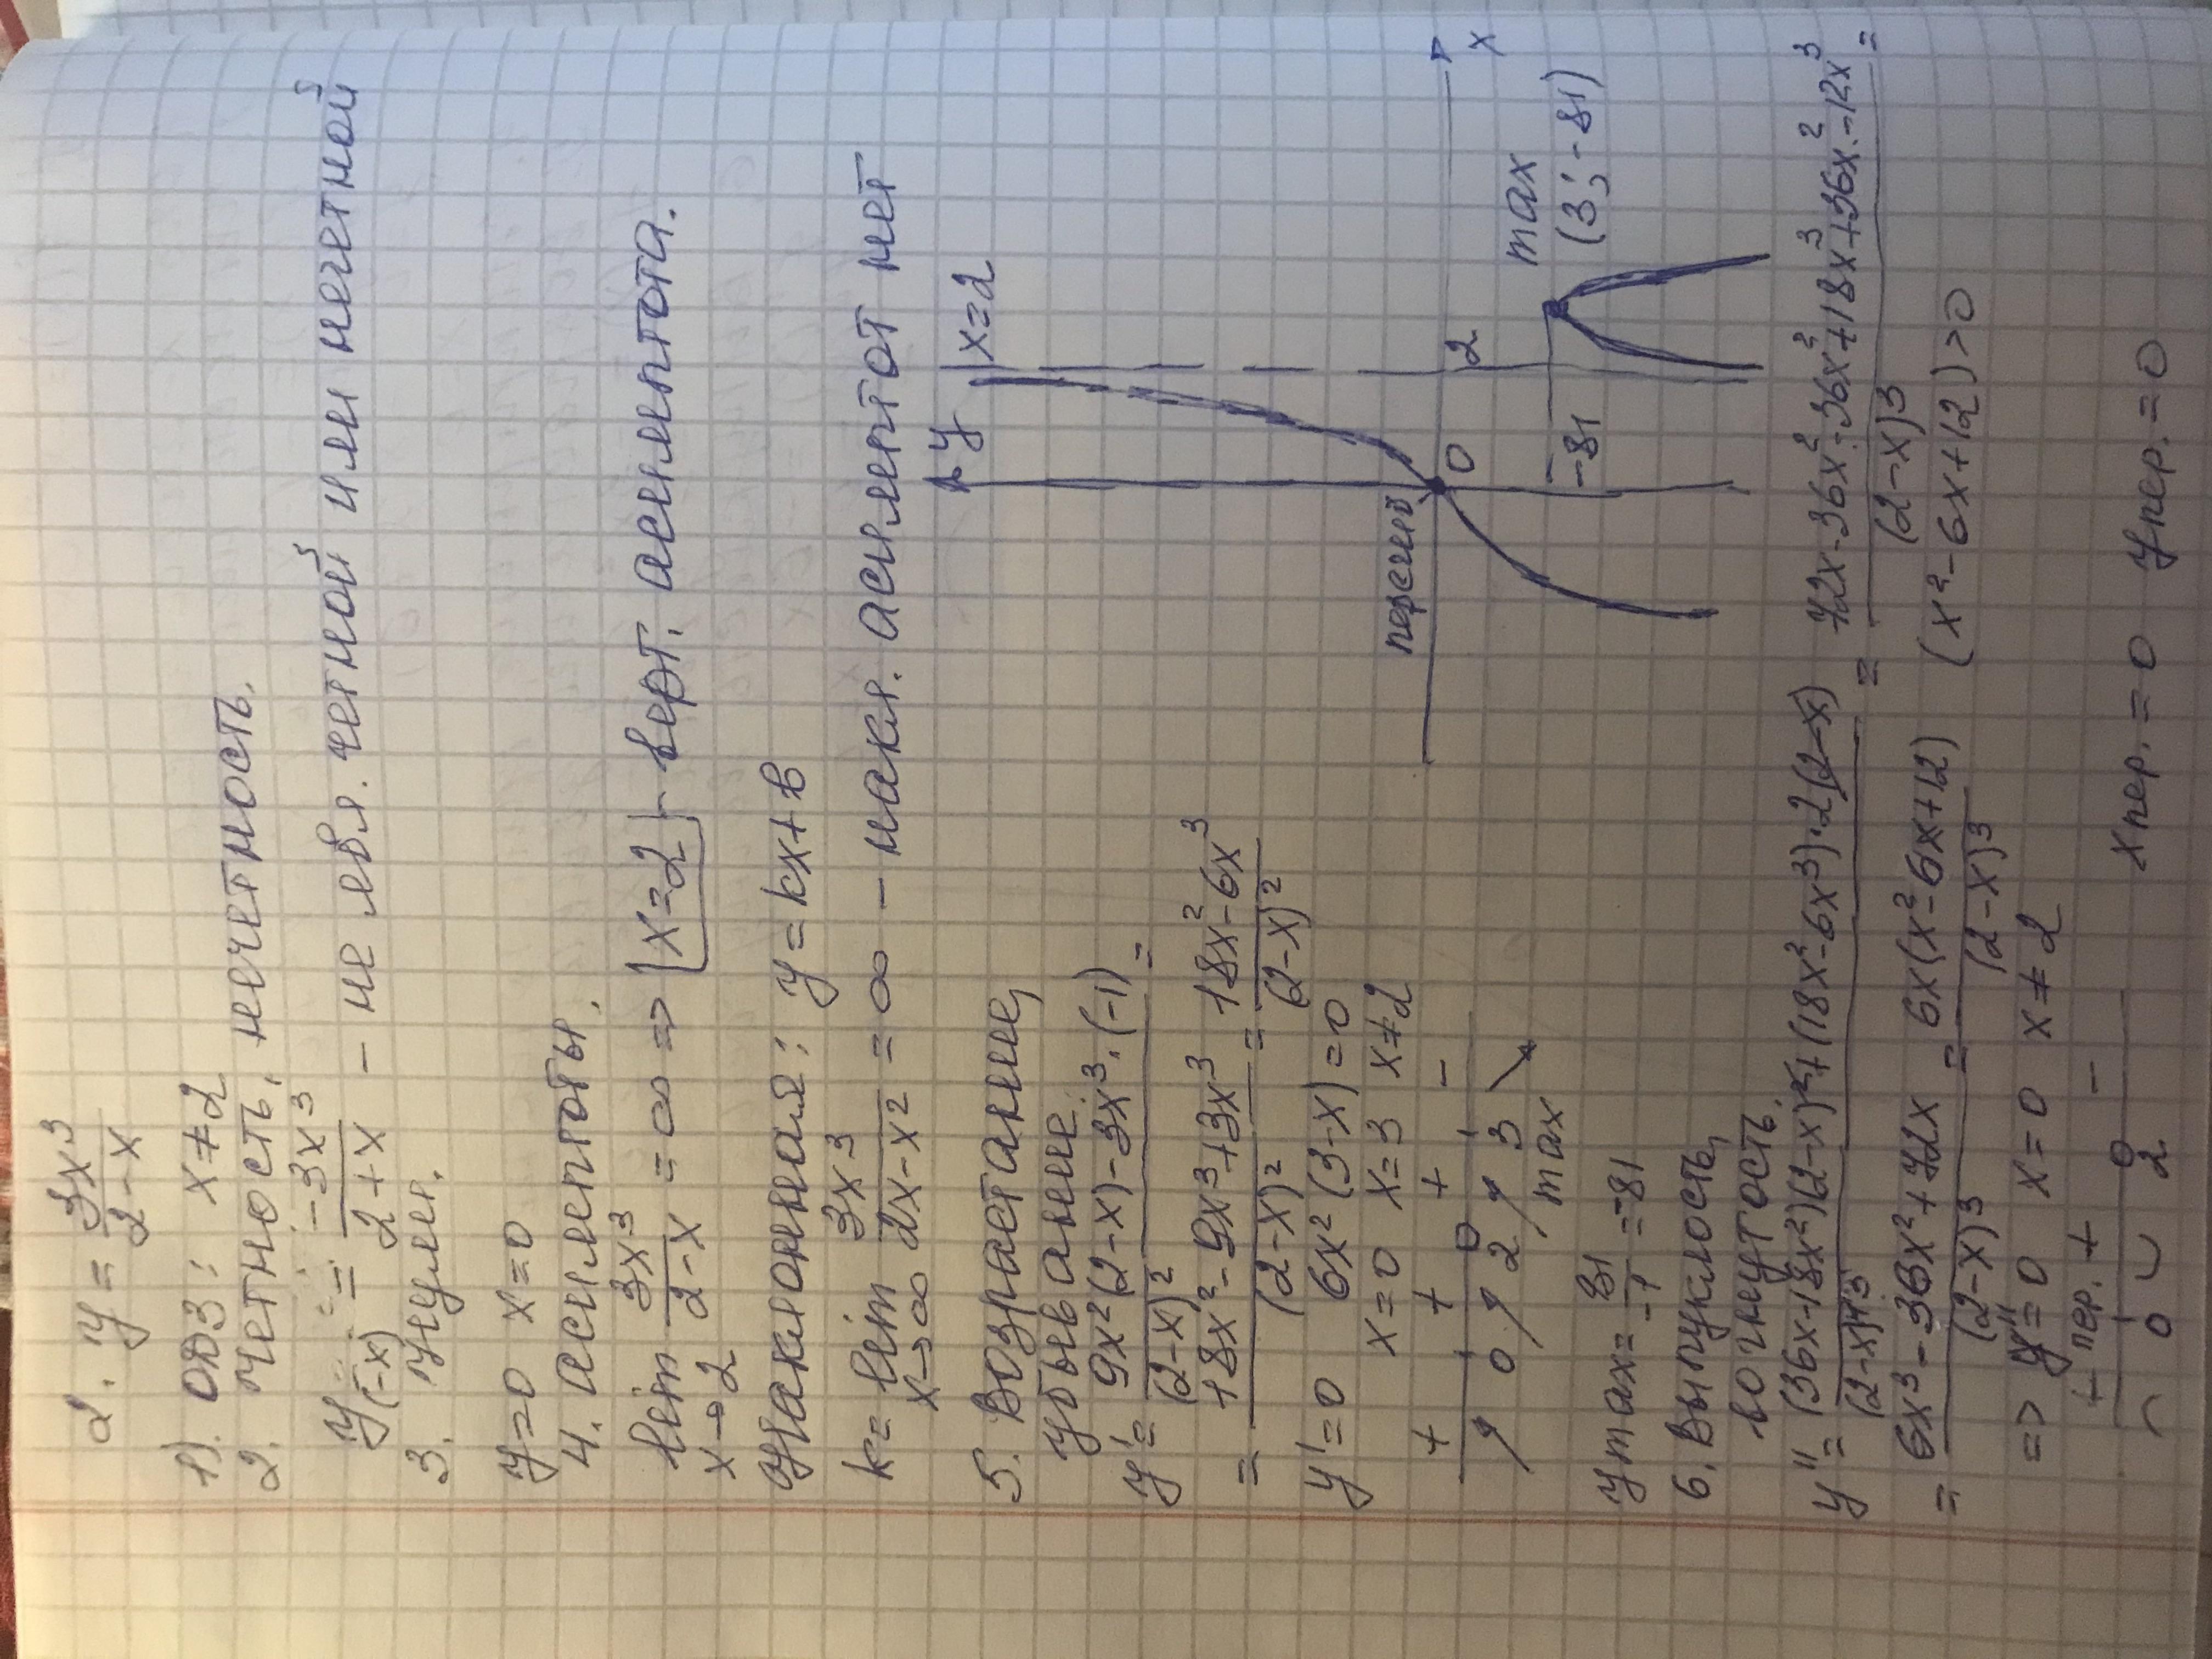 2. y = 3x³/(2-x)
1). ОДЗ: x≠2
2. четность, нечетность.
y(-x) = -3x³/(2+x) - не явл. четной или нечетной
3. нули.
y=0 x=0
4. асимптоты.
lim x→2 3x³/(2-x) = ∞ ⇒ x=2 - верт. асимптота.
наклонная: y=kx+b
k= lim x→∞ 3x³/(2x-x²) = ∞ - накл. асимптот нет
5. Возрастание,
убывание.
y' = (9x²(2-x)-3x³·(-1))/(2-x)² =
= (18x²-9x³+3x³)/(2-x)² = (18x²-6x³)/(2-x)²
y'=0 6x²(3-x)=0
x=0 x=3 x≠2
+ + + -
0 2 3
max
y max = 81/-1 = -81
y
x=2
перегиб
0
2
x
-81
max
(3; -81)
6. Выпуклость,
вогнутость.
y'' = ((36x-18x²)(2-x)²+(18x²-6x³)·2(2-x))/(2-x)⁴ ³ = (72x-36x²-36x²+18x³+36x²-12x³)/(2-x)³ =
= (6x³-36x²+72x)/(2-x)³ = 6x(x²-6x+12)/(2-x)³ (x²-6x+12)>0
=> y''=0 x=0 x≠2
- пер. + -
∩ 0 ∪ 2
x пер. = 0 y пер. = 0